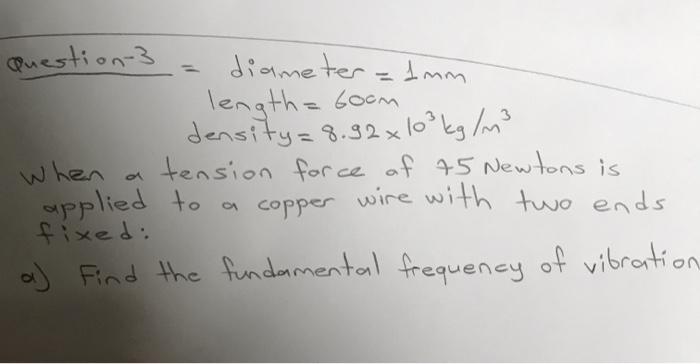 Question-3 = diameter = 1mm
length = 60cm
density = 8.92 x 10³ kg/m³
When a tension force of 75 Newtons is
applied to a copper wire with two ends
fixed:
a) Find the fundamental frequency of vibration